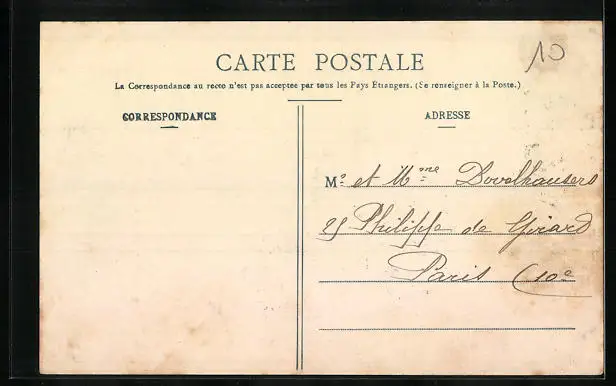 10
CARTE POSTALE
La Correspondance au recto n'est pas acceptée par tous les Pays Etrangers. (Se renseigner à la Poste.)
CORRESPONDANCE
ADRESSE
M.r et Mme
25 Philippe de Girard
Paris (10e